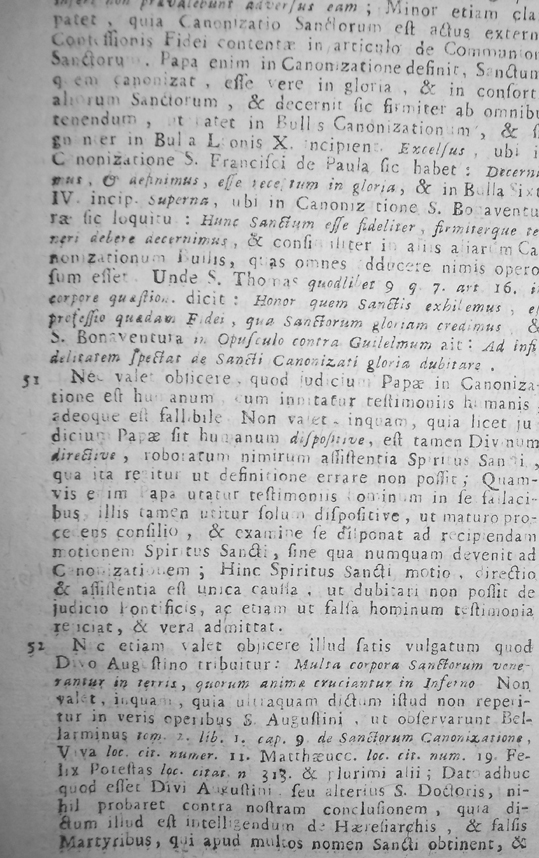 non prævalebunt adversus eam; Minor etiam cla
patet, quia Canonizatio Sanctorum est actus extern
Confessionis Fidei contentæ in articulo de Communion
Sanctoru. Papa enim in Canonizatione definit, Sanctum
quem canonizat, esse vere in gloria, & in consort
aliorum Sanctorum, & decernit sic firmiter ab omnibu
tenendum, ut patet in Bullis Canonizationum, & si
gnanter in Bulla Leonis X. incipient. Excelsus, ubi i
Canonizatione S. Francisci de Paula sic habet: Decerni
mus, & definimus, esse receptum in gloria, & in Bulla Sixt
IV. incip. Superna, ubi in Canonizatione S. Bonaventu
ræ sic loquitur: Hunc Sanctum esse fideliter, firmiterque te
neri debere decernimus, & consimiliter in aliis aliarum Ca
nonizationum Bullis, quas omnes adducere nimis opero
sum esset. Unde S. Thomas quodlibet 9 q. 7. art 16. i
corpore quæstion. dicit: Honor quem Sanctis exhibemus, e
professio quædam Fidei, qua Sanctorum gloriam credimus &
S. Bonaventura in Opusculo contra Guilelmum ait: Ad infi
delitatem spectat de Sancti Canonizati gloria dubitare.
51 Nec valet obiicere, quod judicium Papæ in Canoniza-
tione est humanum, cum innitatur testimoniis humanis,
adeoque est fallibile Non valet inquam, quia licet ju
dicium Papæ sit humanum dispositive, est tamen Divinum
directive, roboratum nimirum assistentia Spiritus Sancti,
qua ita regitur ut definitione errare non possit; Quam-
vis enim Papa utatur testimoniis hominum in se fallaci-
bus illis tamen utitur solum dispositive, ut maturo pro-
cedens consilio, & examine se disponat ad recipiendam
motionem Spiritus Sancti, sine qua numquam devenit ad
Canonizationem; Hinc Spiritus Sancti motio, directio
& assistentia est unica caussa, ut dubitari non possit de
judicio Pontificis, ac etiam ut falsa hominum testimonia
reiiciat, & vera admittat.
52 Nec etiam valet obiicere illud satis vulgatum quod
Divo Augustino tribuitur: Multa corpora Sanctorum vene-
rantur in terris, quorum animæ cruciantur in Inferno Non
valet, inquam, quia ultraquam dictum istud non reperi-
tur in veris operibus S. Augustini, ut observarunt Bel-
larminus tom. 2. lib. 1. cap. 9 de Sanctorum Canonizatione,
Viva loc. cit. numer. 11. Matthæucc. loc. cit. num. 19. Fe-
lix Potestas loc. citat. n 313. & plurimi alii; Dato adhuc
quod esset Divi Augustini seu alterius S. Doctoris, ni-
hil probaret contra nostram conclusionem, quia di-
ctum illud est intelligendum de Hæresiarchis, & falsis
Martyribus, qui apud multos nomen Sancti obtinent, &